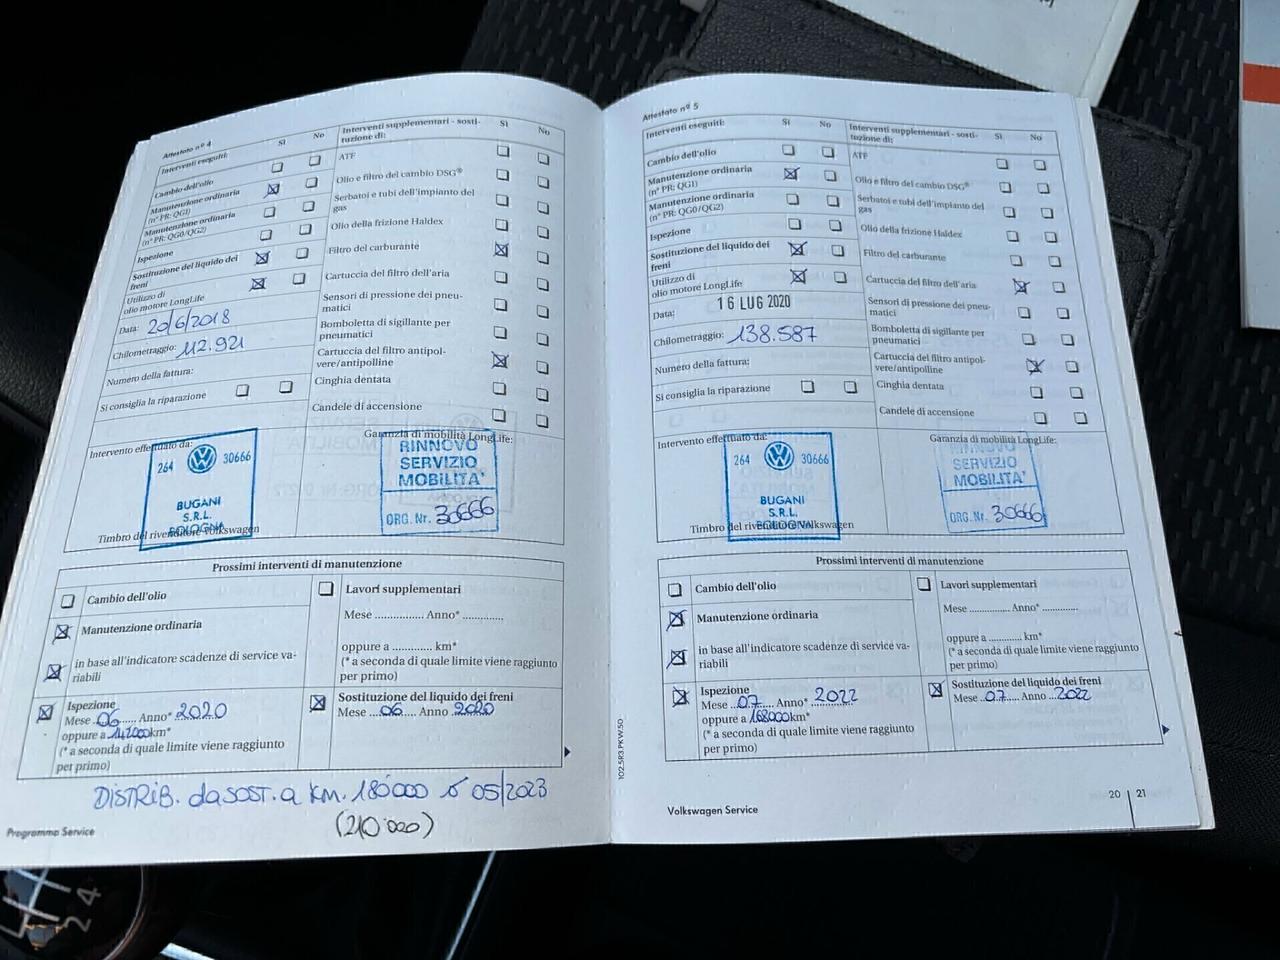 Attestato nº 4
Interventi eseguiti:
Sì
No
Cambio dell'olio
Manutenzione ordinaria
(nº PR: QG1)
Manutenzione ordinaria
(nº PR: QG0/QG2)
Ispezione
Sostituzione del liquido dei
freni
Utilizzo di
olio motore LongLife
Data: 20/6/2018
Chilometraggio: 112.921
Numero della fattura:
Si consiglia la riparazione
Interventi supplementari - sosti-
tuzione di:
Sì
No
ATF
Olio e filtro del cambio DSG®
Serbatoi e tubi dell'impianto del
gas
Olio della frizione Haldex
Filtro del carburante
Cartuccia del filtro dell'aria
Sensori di pressione dei pneu-
matici
Bomboletta di sigillante per
pneumatici
Cartuccia del filtro antipol-
vere/antipolline
Cinghia dentata
Candele di accensione
Intervento effettuato da:
264 30666
BUGANI
S.R.L.
BOLOGNA
Timbro del rivenditore Volkswagen
Garanzia di mobilità LongLife:
RINNOVO
SERVIZIO
MOBILITA'
ORG. Nr. 30666
Prossimi interventi di manutenzione
Cambio dell'olio
Manutenzione ordinaria
in base all'indicatore scadenze di service va-
riabili
Ispezione
Mese 06 Anno* 2020
oppure a 142000 km*
(* a seconda di quale limite viene raggiunto
per primo)
Lavori supplementari
Mese ............... Anno* ............
oppure a ............ km*
(* a seconda di quale limite viene raggiunto
per primo)
Sostituzione del liquido dei freni
Mese 06 Anno 2020
DISTRIB. da SOST. a KM. 180000 o 05/2023
(210'000)
Programma Service
Attestato nº 5
Interventi eseguiti:
Sì
No
Cambio dell'olio
Manutenzione ordinaria
(nº PR: QG1)
Manutenzione ordinaria
(nº PR: QG0/QG2)
Ispezione
Sostituzione del liquido dei
freni
Utilizzo di
olio motore LongLife
Data: 16 LUG 2020
Chilometraggio: 138.587
Numero della fattura:
Si consiglia la riparazione
Interventi supplementari - sosti-
tuzione di:
Sì
No
ATF
Olio e filtro del cambio DSG®
Serbatoi e tubi dell'impianto del
gas
Olio della frizione Haldex
Filtro del carburante
Cartuccia del filtro dell'aria
Sensori di pressione dei pneu-
matici
Bomboletta di sigillante per
pneumatici
Cartuccia del filtro antipol-
vere/antipolline
Cinghia dentata
Candele di accensione
Intervento effettuato da:
264 30666
BUGANI
S.R.L.
BOLOGNA
Timbro del rivenditore Volkswagen
Garanzia di mobilità LongLife:
RINNOVO
SERVIZIO
MOBILITA'
ORG. Nr. 30666
Prossimi interventi di manutenzione
Cambio dell'olio
Manutenzione ordinaria
in base all'indicatore scadenze di service va-
riabili
Ispezione
Mese 07 Anno* 2022
oppure a 168000 km*
(* a seconda di quale limite viene raggiunto
per primo)
Lavori supplementari
Mese ............ Anno* ............
oppure a ............ km*
(* a seconda di quale limite viene raggiunto
per primo)
Sostituzione del liquido dei freni
Mese 07 Anno 2022
102.5R3.PKW.50
Volkswagen Service
20 21
2 4